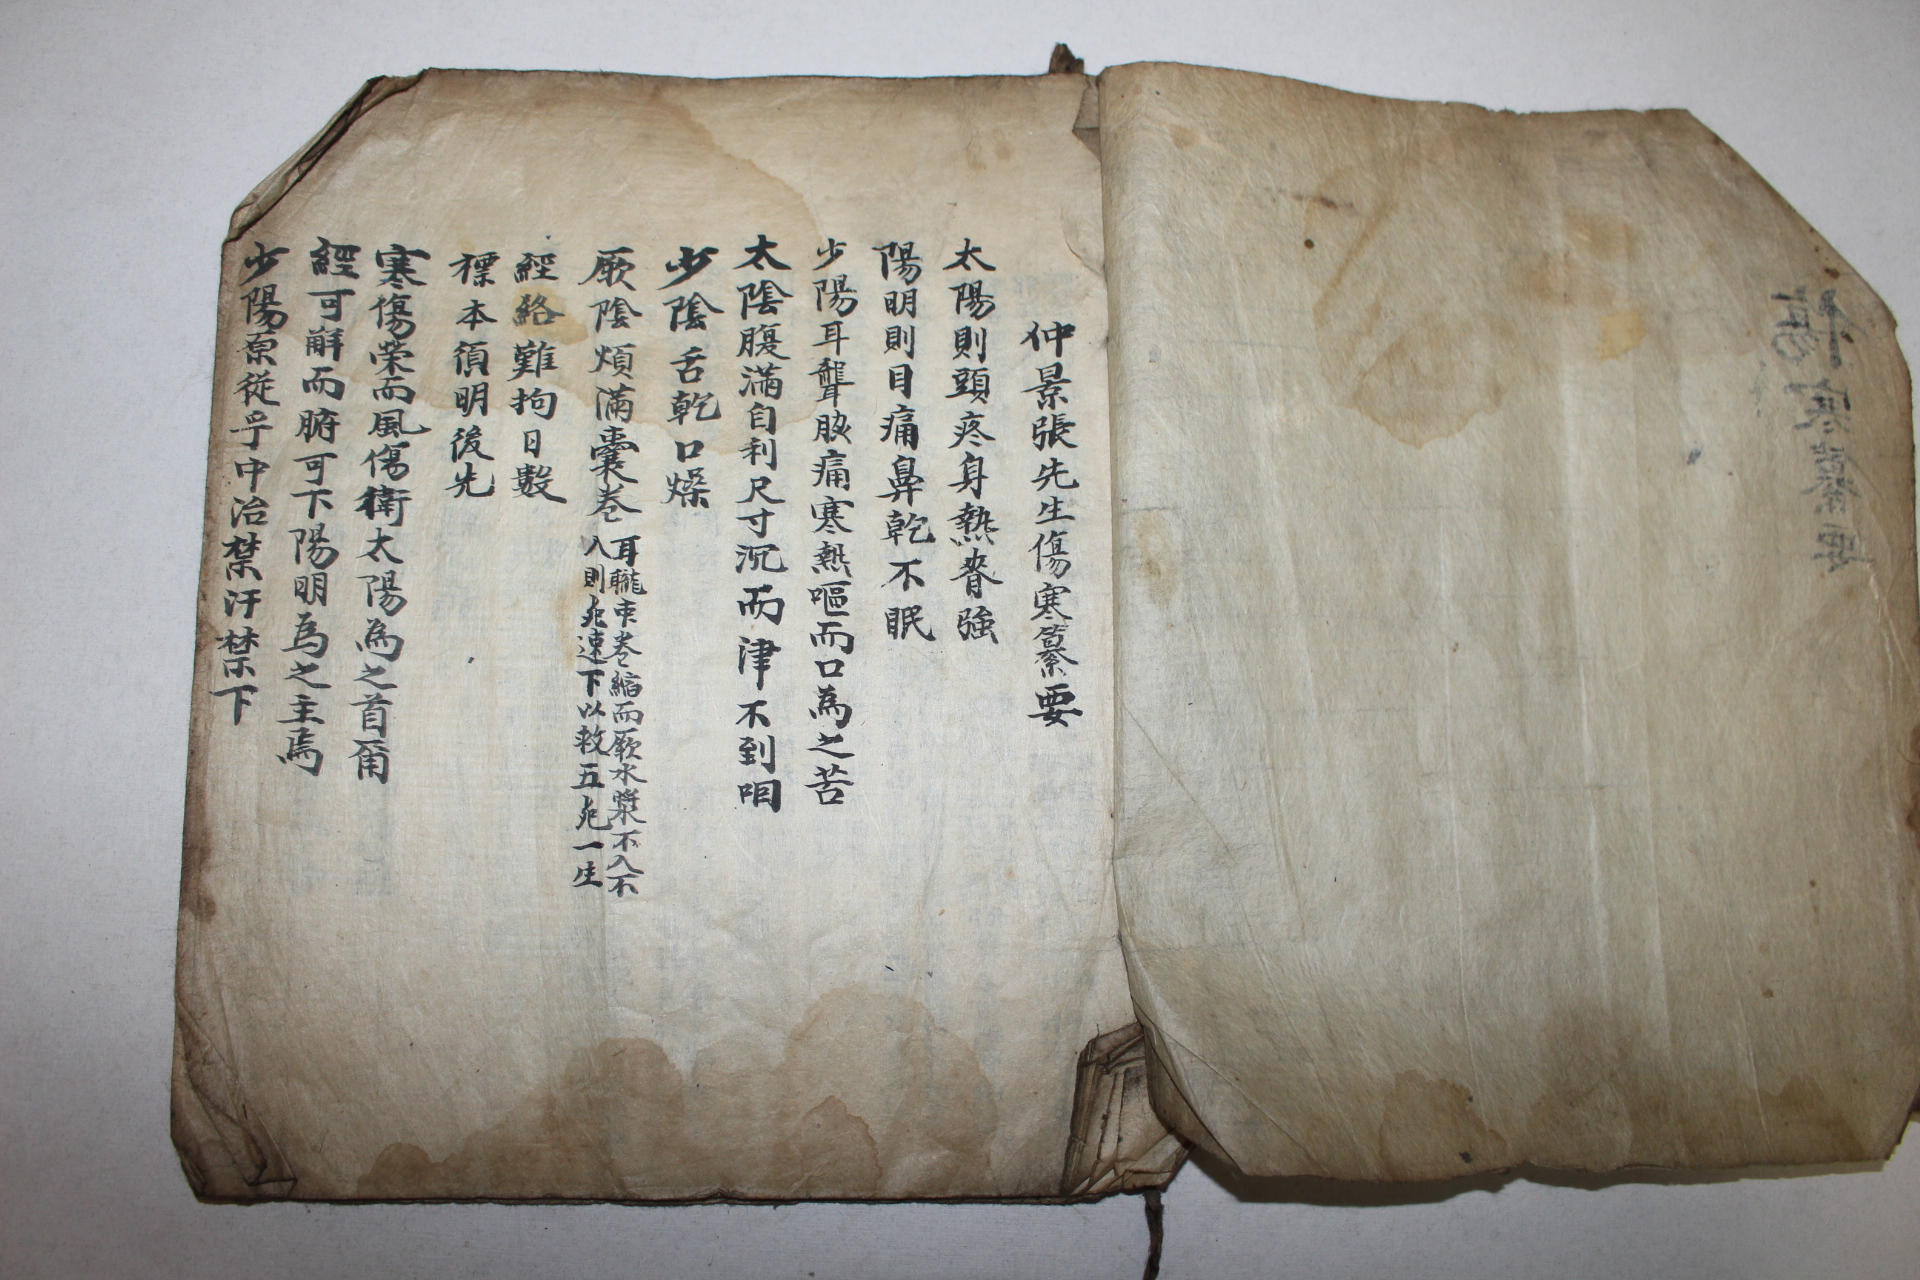 傷寒纂要
仲景張先生傷寒纂要
太陽則頭疼身熱脊強
陽明則目痛鼻乾不眠
少陽耳聾脇痛寒熱嘔而口為之苦
太陰腹滿自利尺寸沉而津不到咽
少陰舌乾口燥
厥陰煩滿囊巻
耳聾囊巻縮而厥水漿不入不
入則死速下以救五死一生
經絡難拘日數
標本須明後先
寒傷荣而風傷衛太陽為之首爾
經可解而腑可下陽明為之主焉
少陽原從乎中治禁汗禁下